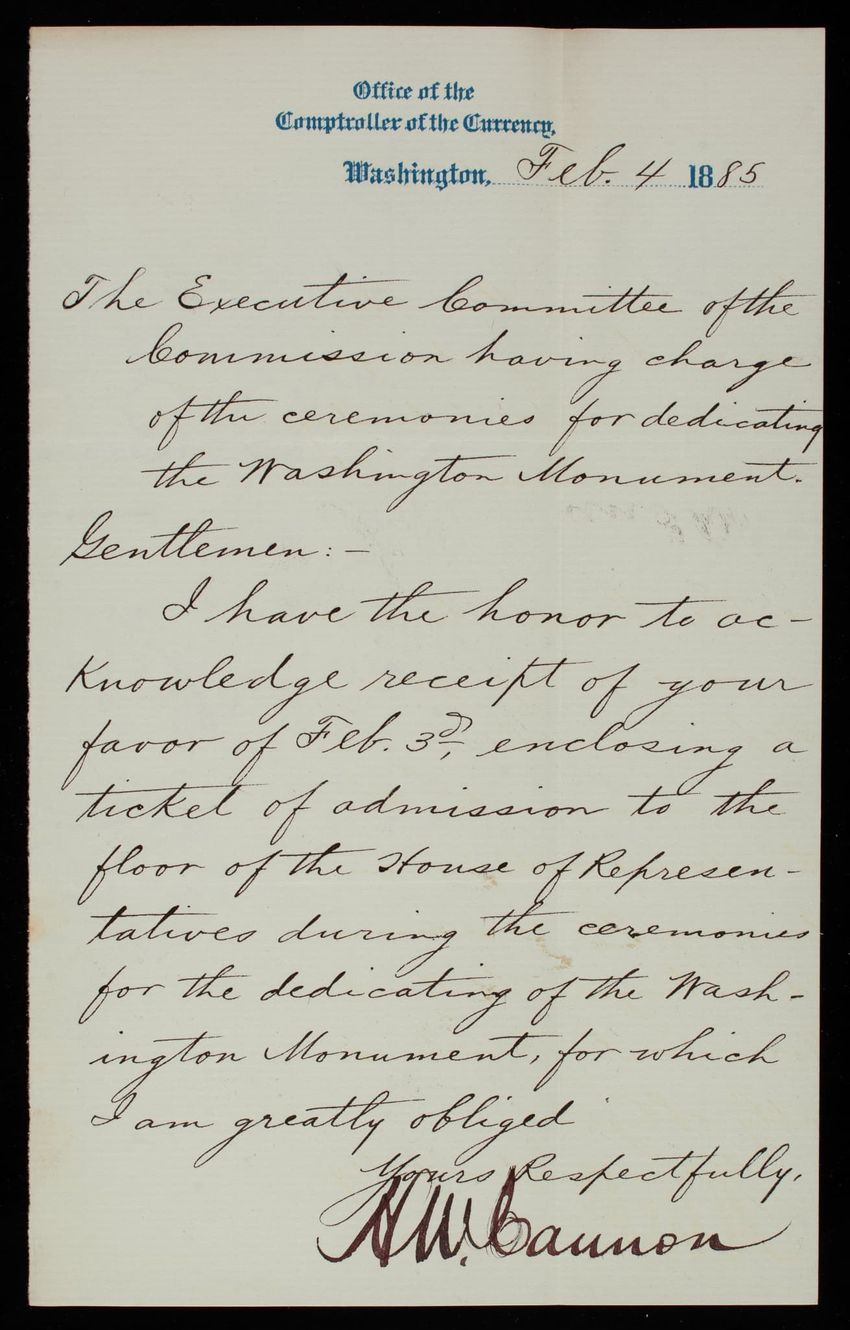 Office of the
Comptroller of the Currency,
Washington, Feb. 4 1885
The Executive Committee of the
Commission having charge
of the ceremonies for dedicating
the Washington Monument.
Gentlemen:—
I have the honor to ac-
knowledge receipt of your
favor of Feb. 3d, enclosing a
ticket of admission to the
floor of the House of Represen-
tatives during the ceremonies
for the dedicating of the Wash-
ington Monument, for which
I am greatly obliged
Yours Respectfully,
H.W. Cannon